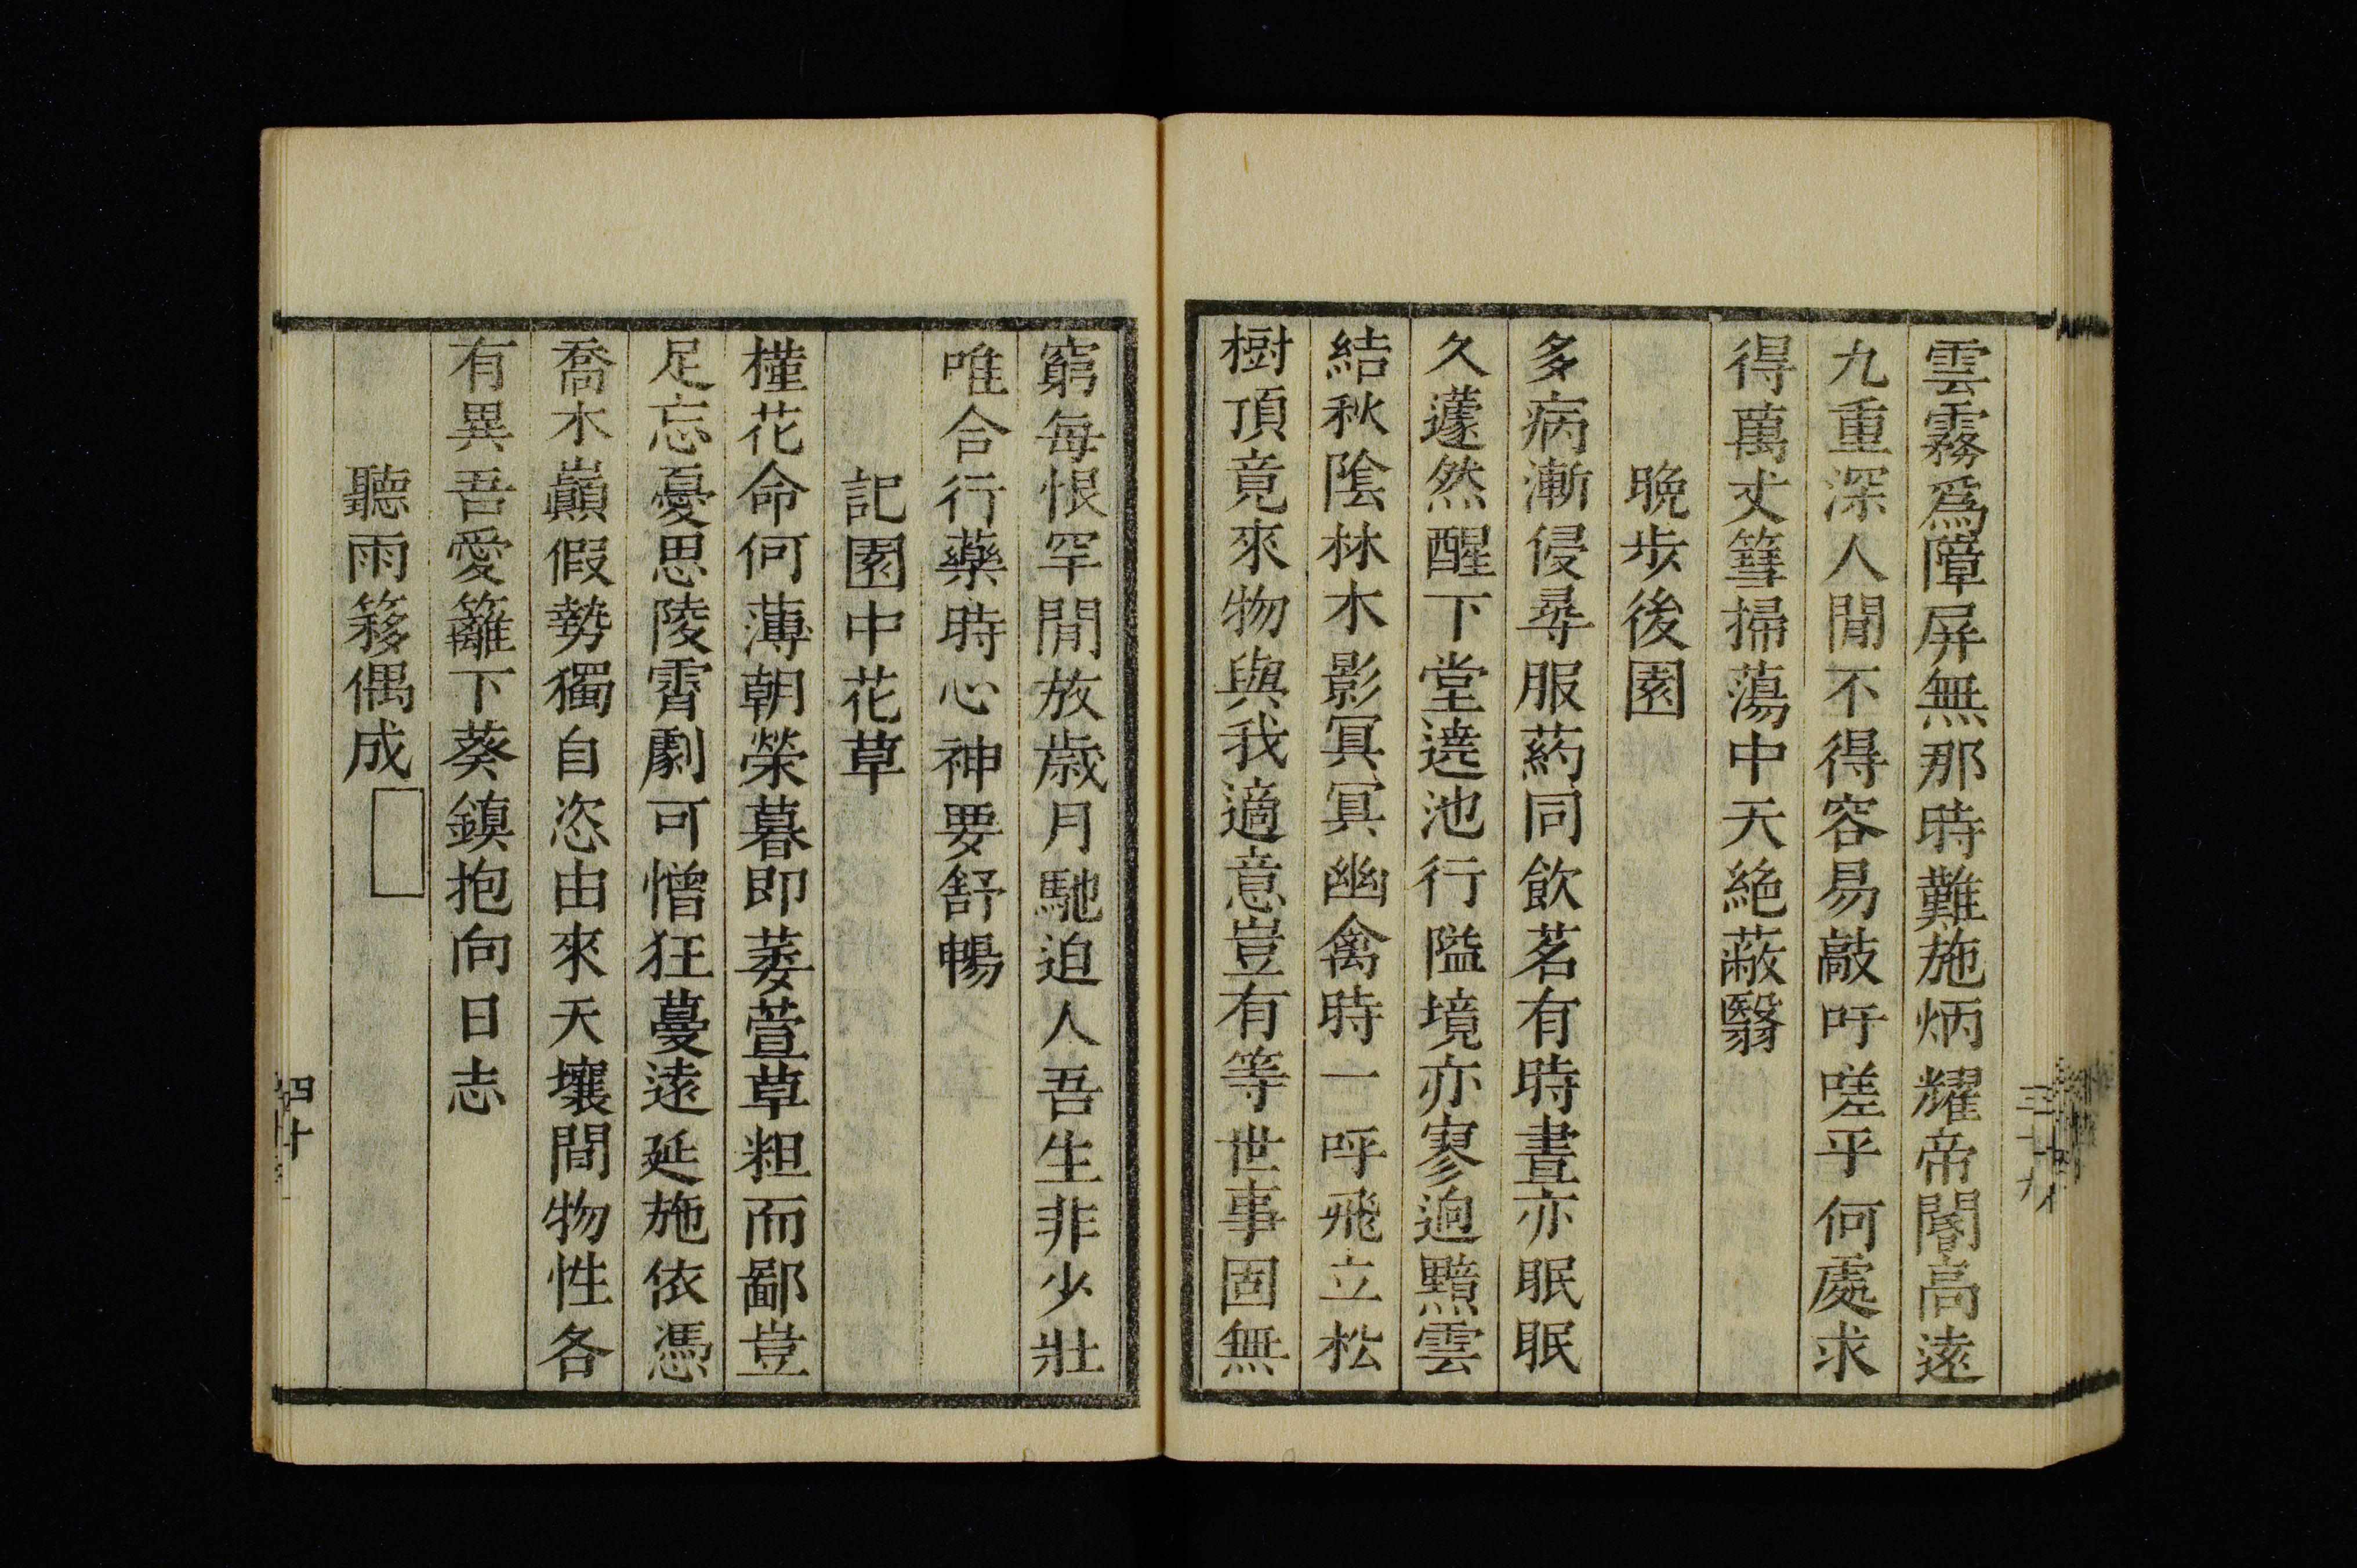 雲霧爲障屏無那時難施炳耀帝閽高遠
九重深人閒不得容易敲吁嗟乎何處求
得萬丈篲掃蕩中天絶蔽翳
晩歩後園
多病漸侵尋服葯同飲茗有時晝亦眠眠
久蘧然醒下堂遶池行隘境亦寥逈黯雲
結秋陰林木影冥冥幽禽時一呼飛立松
樹頂竟來物與我適意豈有等世事固無
窮每恨罕閒放歳月馳迫人吾生非少壯
唯合行藥時心神要舒暢
記園中花草
槿花命何薄朝榮暮即萎萱草粗而鄙豈
足忘憂思陵霄劇可憎狂蔓遠延施依憑
喬木巓假勢獨自恣由來天壤間物性各
有異吾愛籬下葵鎮抱向日志
聽雨簃偶成
四十